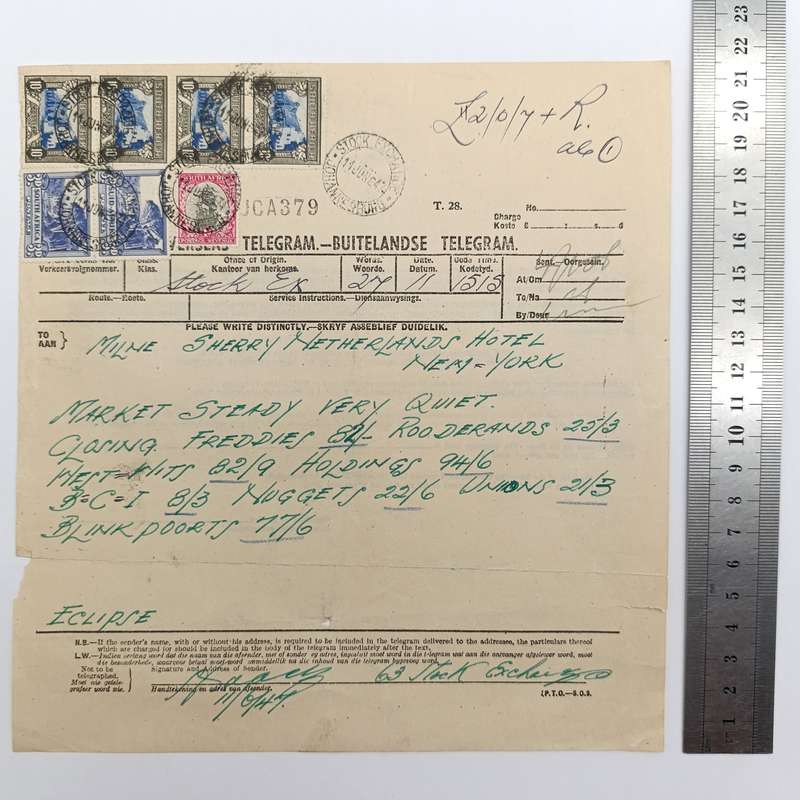 £2/0/7 + R.
STOCK EXCHANGE
11 JUN 47
JOHANNESBURG
JCA379
T. 28.
No.
Charge
Koste £ s. d
TELEGRAM.—BUITELANDSE TELEGRAM.
Verkeersvolgnommer.
Klas.
Office of Origin.
Kantoor van herkoms.
Words.
Woorde.
Date.
Datum.
Code Time.
Kodetyd.
Sent.—Oorgesein.
Stock Ex 27 11 1515
At/Om
Route.—Roete.
Service Instructions.—Diensaanwysings.
To/Na
By/Deur
PLEASE WRITE DISTINCTLY.—SKRYF ASSEBLIEF DUIDELIK.
TO
AAN
MILNE SHERRY NETHERLANDS HOTEL
NEW=YORK
MARKET STEADY VERY QUIET.
CLOSING FREDDIES 82/- ROODERANDS 25/3
WEST=WITS 82/9 HOLDINGS 94/6
B=C=I 8/3 NUGGETS 22/6 UNIONS 21/3
BLINKPOORTS 77/6
ECLIPSE
N.B.—If the sender's name, with or without his address, is required to be included in the telegram delivered to the addressee, the particulars thereof
which are charged for should be included in the body of the telegram immediately after the text.
L.W.—Indien verlang word dat die naam van die afsender, met of sonder sy adres, ingesluit moet word in die telegram wat aan die ontvanger afgelewer word, moet
die besonderhede, waarvoor betaal moet word onmiddellik na die inhoud van die telegram bygevoeg word.
Not to be
telegraphed.
Moet nie getele-
grafeer word nie.
Signature and Address of Sender.
63 Stock Exchange
Handtekening en adres van afsender.
11/6/47.
(P.T.O.—S.O.S.
1 2 3 4 5 6 7 8 9 10 11 12 13 14 15 16 17 18 19 20 21 22 23